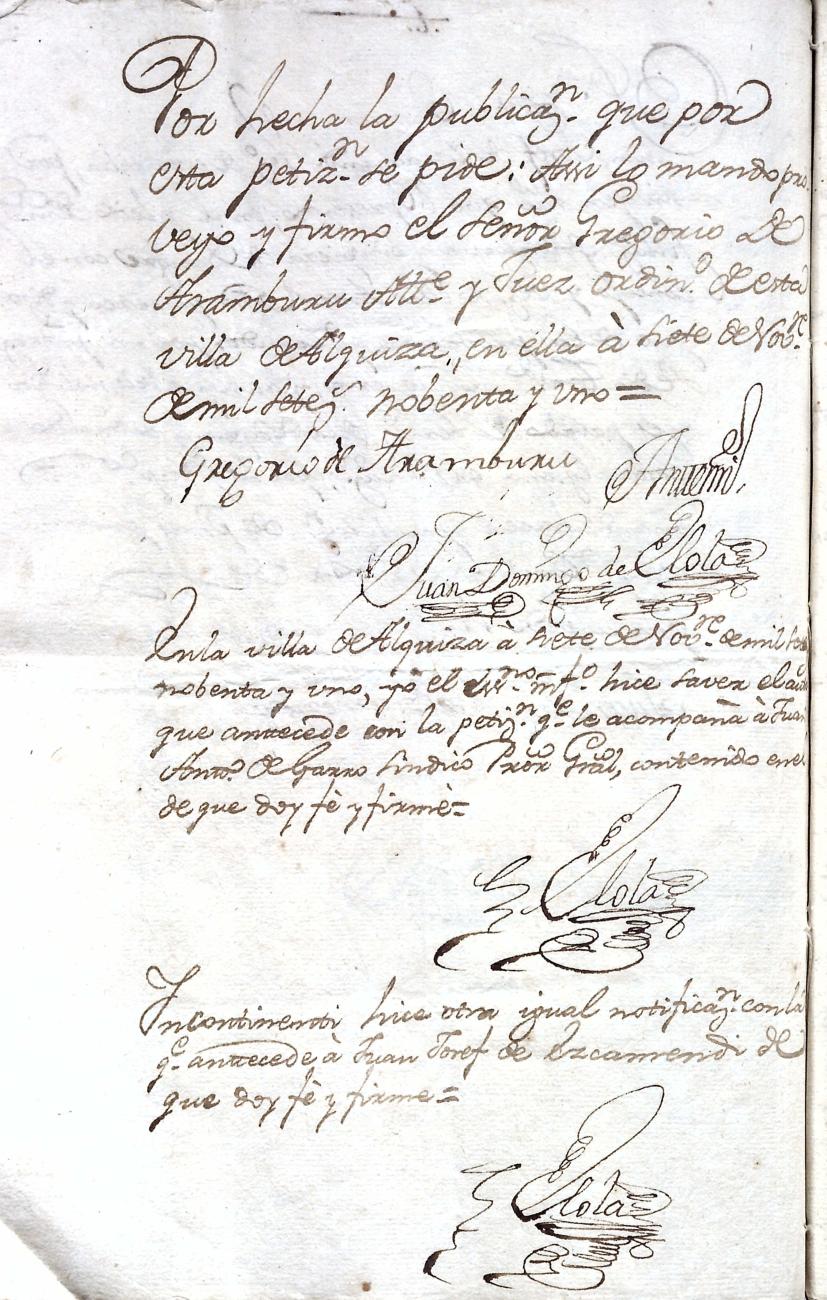 Por hecha la publicazn. que por
esta petizn. se pide: Assi lo mando pro
veyo y firmo el señor Gregorio de
Aramburu Alle. y Juez ordin.o de esta
villa de Alquiza, en ella à siete de Nobre.
de mil setes. nobenta y uno=
Gregorio de Aramburu Antemi
Juan Domingo de Elola
En la villa de Alquiza à siete de Novre. de mil sets
nobenta y uno, yo el essno. infro. hice saver el auto
que antecede con la petizn. qe. le acompaña à Juan
Anto. de Garro sindico Pror Gral, contenido en el
de que doy fè y firmè=
Elola
Incontinenti hice otra igual notificazn. con la
qe. antecede à Juan Josef de Ezcamendi de
que doy fè y firme=
Elola